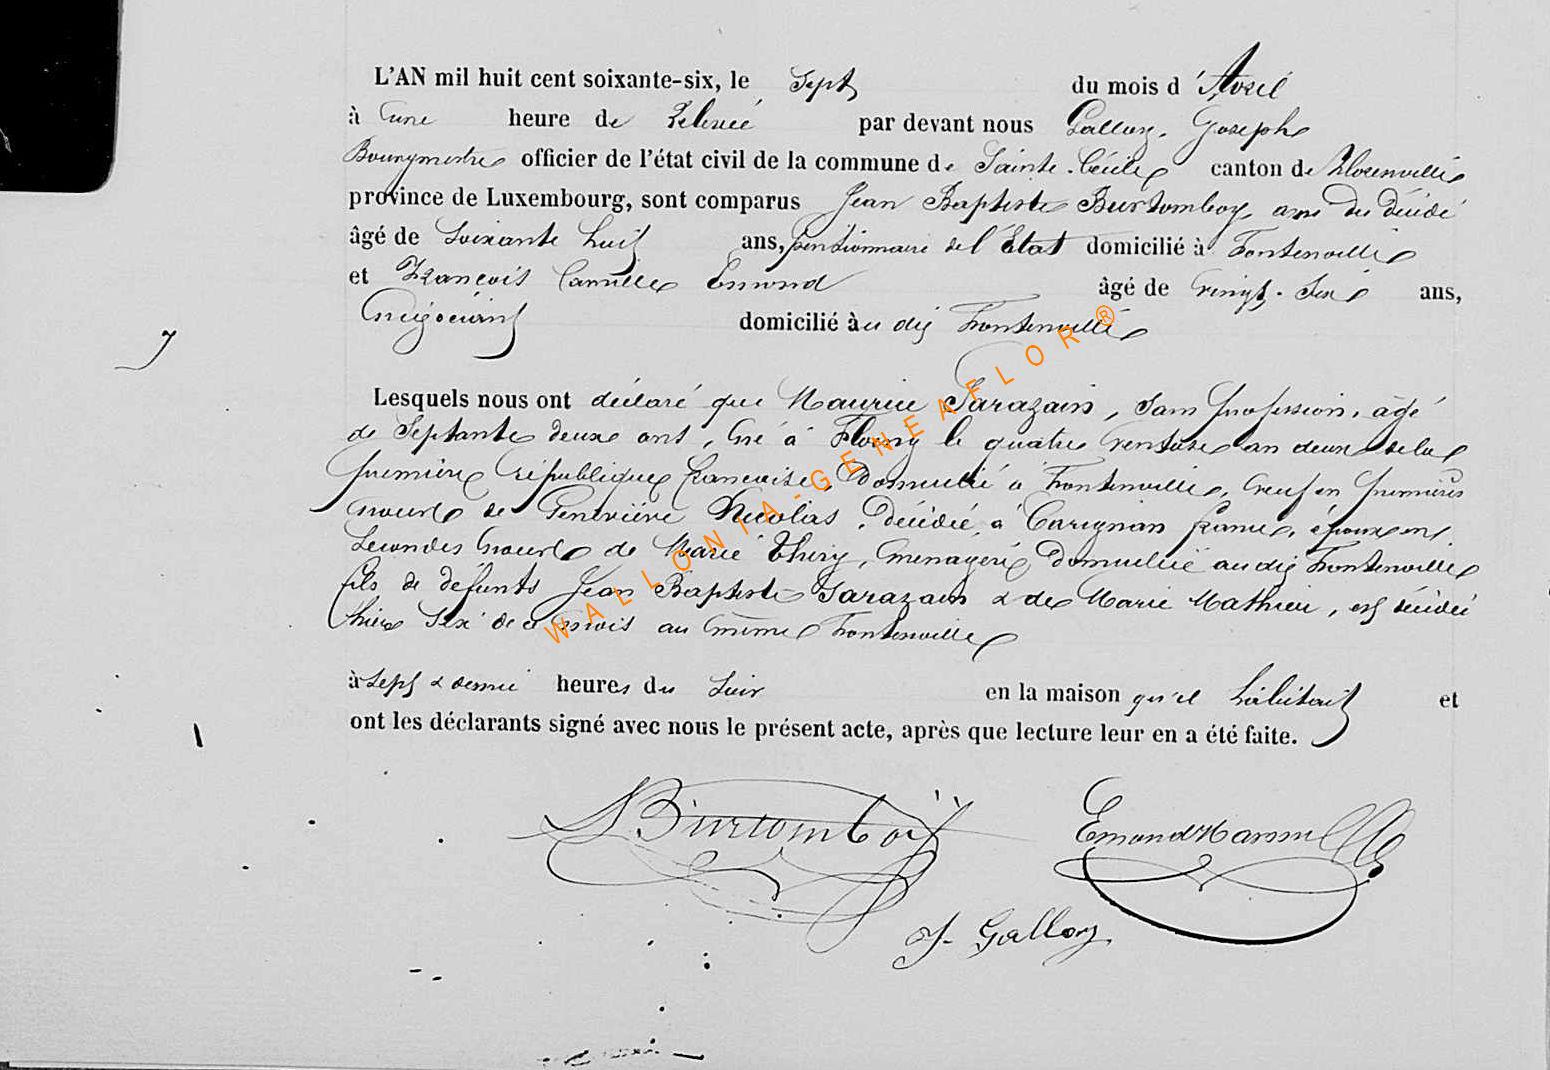 L'AN mil huit cent soixante-six, le Sept du mois d'Avril
à une heure de Relevée par devant nous Galloy, Joseph
Bourgmestre officier de l'état civil de la commune de Sainte-Cécile canton de Florenville
province de Luxembourg, sont comparus Jean Baptiste Burtomboy, ami du décédé
âgé de Soixante huit ans, pensionnaire de l'Etat domicilié à Fontenoille
et François Camille Emond âgé de vingt-six ans,
négociant domicilié au dit Fontenoille
Lesquels nous ont déclaré que Maurice Sarazain, sans profession, âgé
de Septante deux ans, né à Floing le quatre ventose an deux de la
première république française, domicilié à Fontenoille, veuf en premières
noces de Geneviève Nicolas, décédée à Carignan france, époux en
secondes noces de Marie Thiry, ménagère domiciliée au dit Fontenoille
fils de défunts Jean Baptiste Sarazain & de Marie Mathieu, est décédé
hier six de ce mois au même Fontenoille
à sept & demie heures du soir en la maison qu'il habitait et
ont les déclarants signé avec nous le présent acte, après que lecture leur en a été faite.
Burtomboÿ Emond
J. Galloy
WALLONIA-GENEAFLOR®